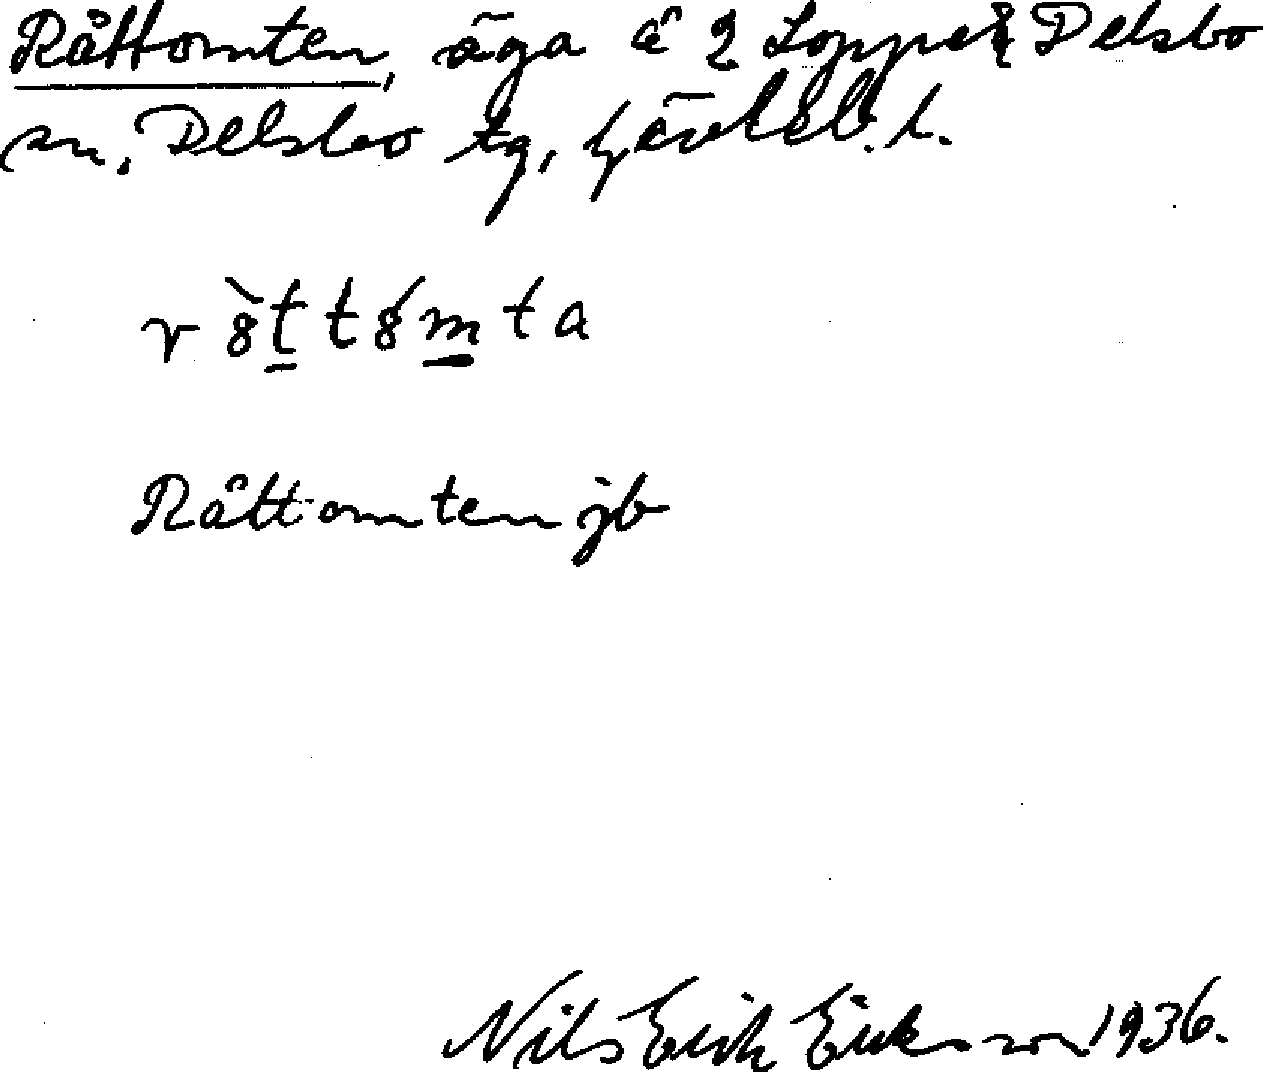 Råttomten, äga å 2 Loppet Delsbo
sn, Delsbo tg, Gävleb. l.
r8̀tt8́mta
Råttomten jb
Nils Erik Eriksson 1936.